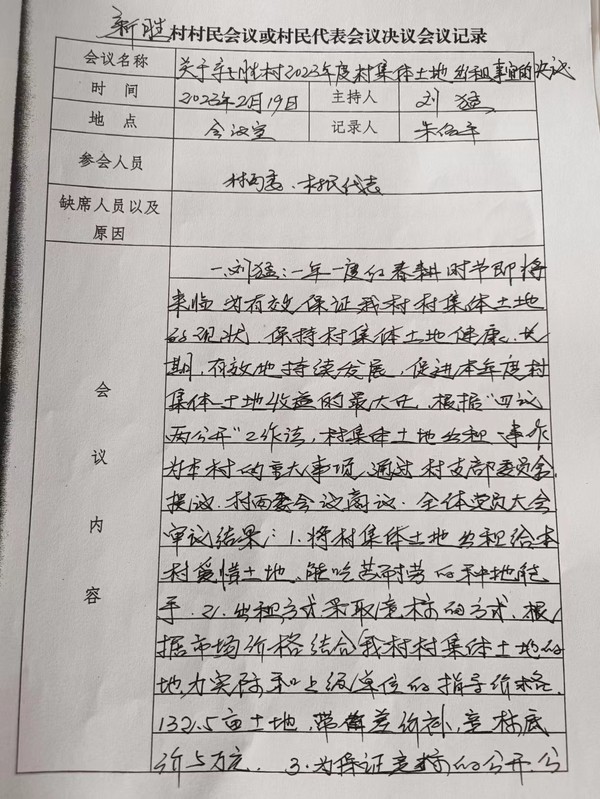 新胜村村民会议或村民代表会议决议会议记录
会议名称 关于新胜村2023年度村集体土地出租事宜的决议
时间 2023年2月19日 主持人 刘猛
地点 会议室 记录人 朱
参会人员 村两委、村民代表
缺席人员以及原因
会议内容
一.刘猛:一年一度的春耕时节即将
来临为有效保证我村村集体土地
的现状,保持村集体土地健康、长
期,有效地持续发展,促进本年度村
集体土地收益的最大化,根据“四议
两公开”工作法,村集体土地出租一事作
为本村的重大事项,通过村支部委员会
提议.村两委会议商议.全体党员大会
审议结果:1.将村集体土地出租给本
村爱惜土地、能吃苦耐劳的种地能
手.2.出租方式采取竞标的方式.根
据市场价格结合我村村集体土地的
地力实际和上级单位的指导价格.
132.5亩土地,带差价补,竞标底
价5万元. 3.为保证竞标的公开.公